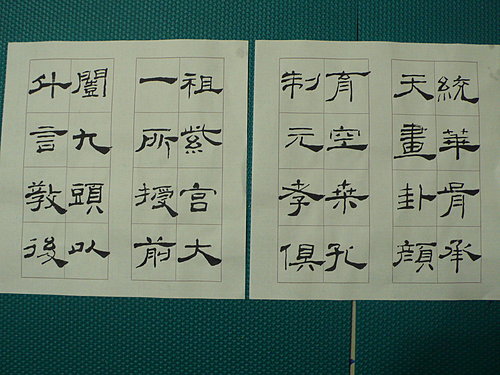 統華胥承
天畫卦顏
育空桑孔
制元孝俱
祖紫宮大
一所授前
闓九頭以
什言教後